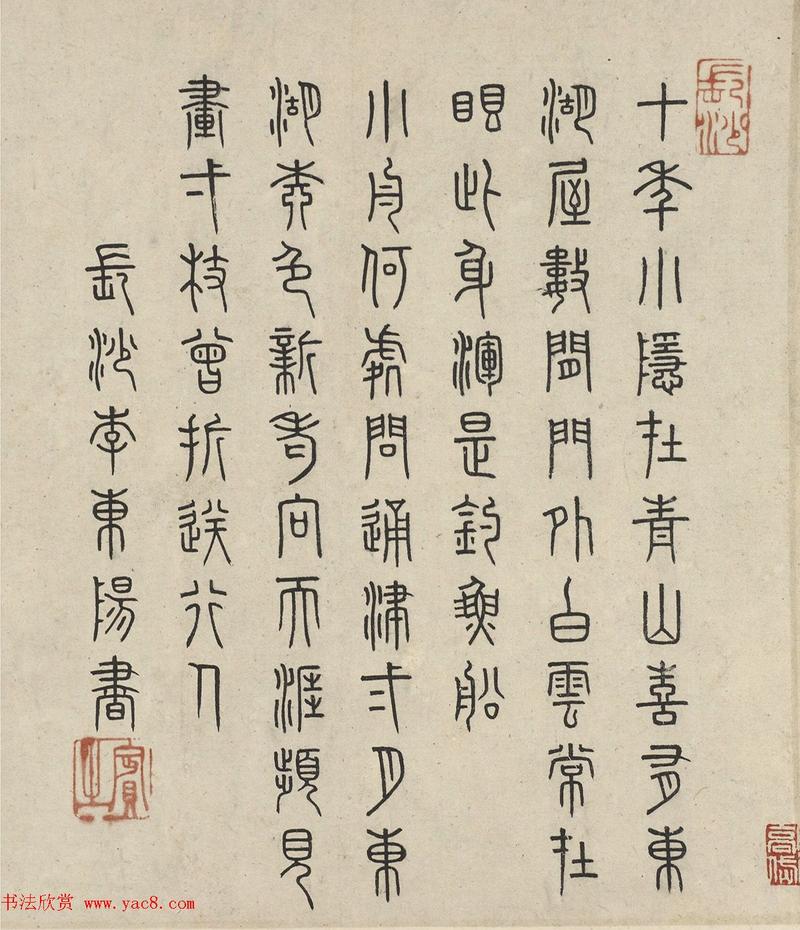 長沙
十年小隱在青山喜有東
湖屋數間門外白雲常在
眼此身渾是釣魚船
小舟何處問通津二月東
湖秀色新看向天涯頻見
畫一枝曾折送行人
長沙李東陽書
賓之
书法欣赏 www.yac8.com